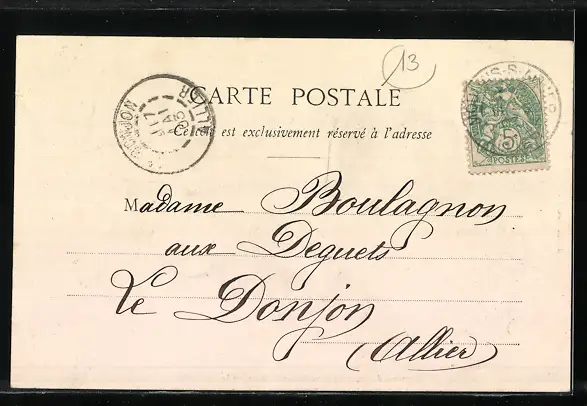 13
CARTE POSTALE
Ce côté est exclusivement réservé à l'adresse
Madame Boulagnon
aux Deguets
Le Donjon
Allier
5
POSTES
DONJON
ALLIER
17
05